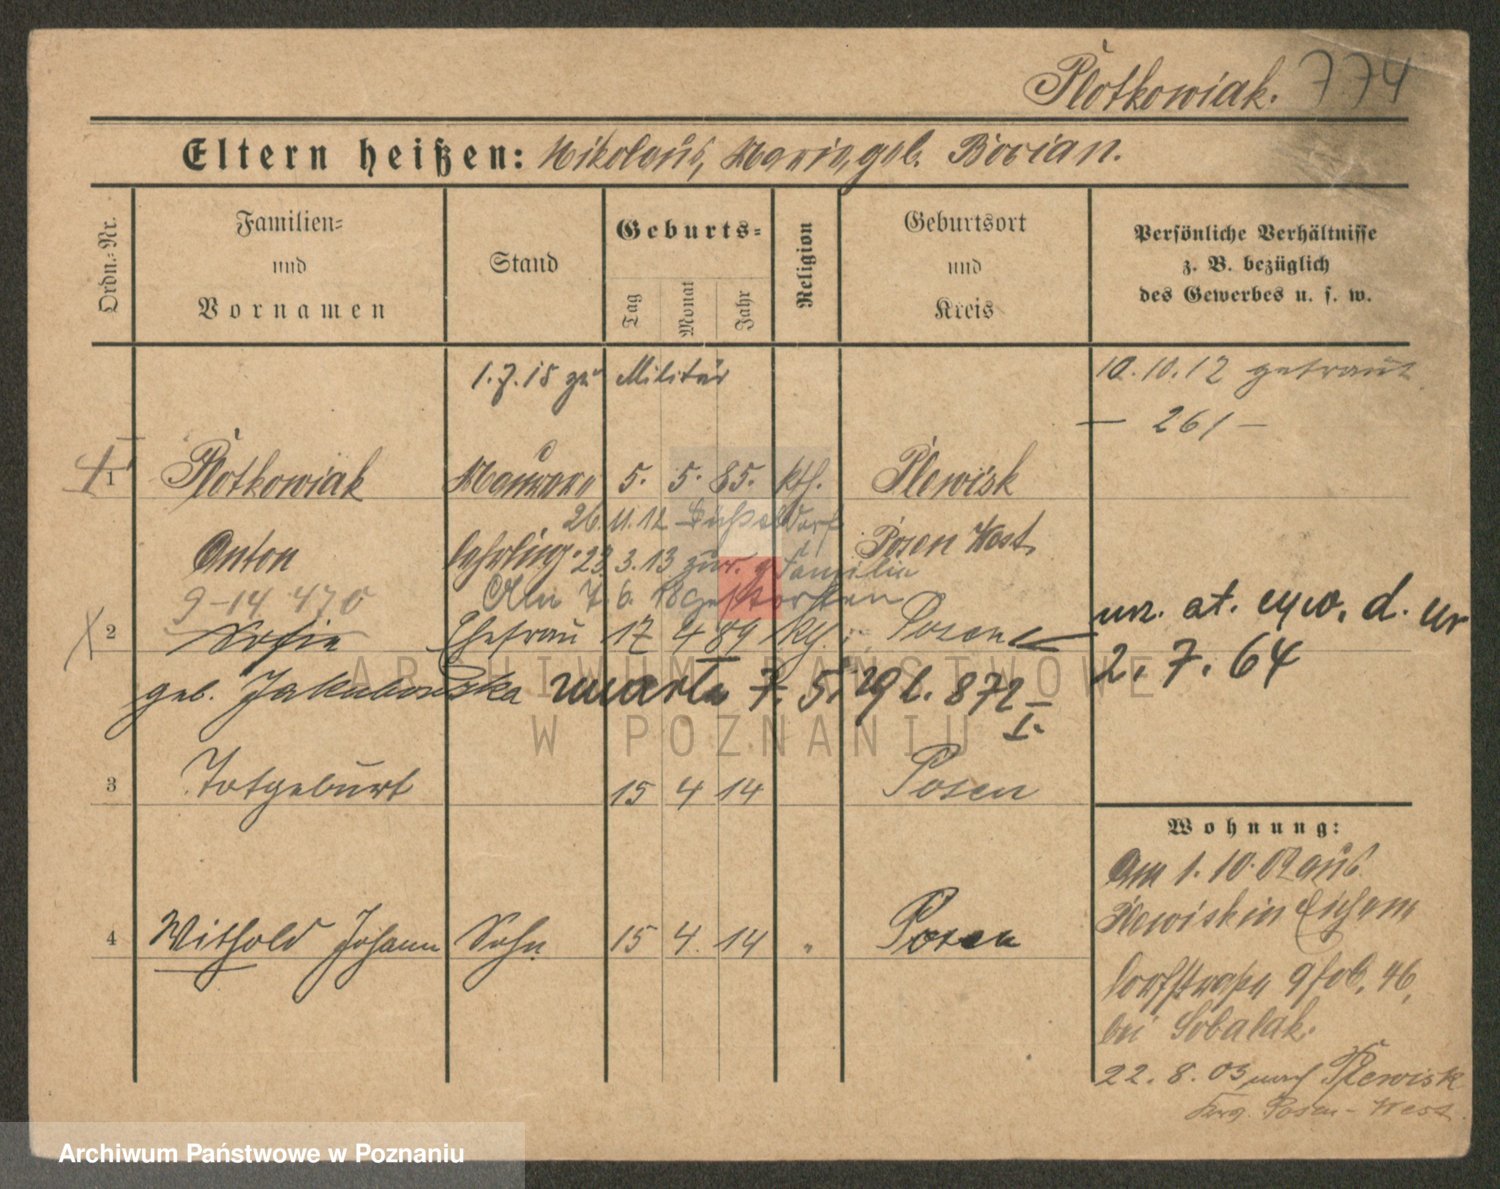 Plotkowiak. 774
Eltern heißen: Nikolaus, Maria, geb. Borian.
Ordn.-Nr.
Familien-
und
Vornamen
Stand
Geburts-
Tag
Monat
Jahr
Religion
Geburtsort
und
Kreis
Persönliche Verhältnisse
z. B. bezüglich
des Gewerbes u. s. w.
1.7.18 zu Militär
10.10.12 getraut
— 261 —
1 Plotkowiak Maurer 5. 5. 85. kth. Plewisk
26.11.12 Düsseldorf
Anton lehrling. 23.3.13 zur. z Familie Posen West
9-14 470 7. 6. 18 gestorben
2 Sofie Ehefrau 17 4 89 Posen
geb. Jakubowska zmarła 7. 5. 29 l. 872
I.
urz. st. cyw. d.
2. 7. 64
3 Totgeburt 15 4 14 Posen
4 Withold Johann Sohn 15 4. 14 " Posen
Wohnung:
Am 1.10.02 aus
Plewisk in
dorfstraße 46,
bei Sobalak.
22. 8. 03 nach Plewisk
Posen-West.
ARCHIWUM PAŃSTWOWE
W POZNANIU
Archiwum Państwowe w Poznaniu